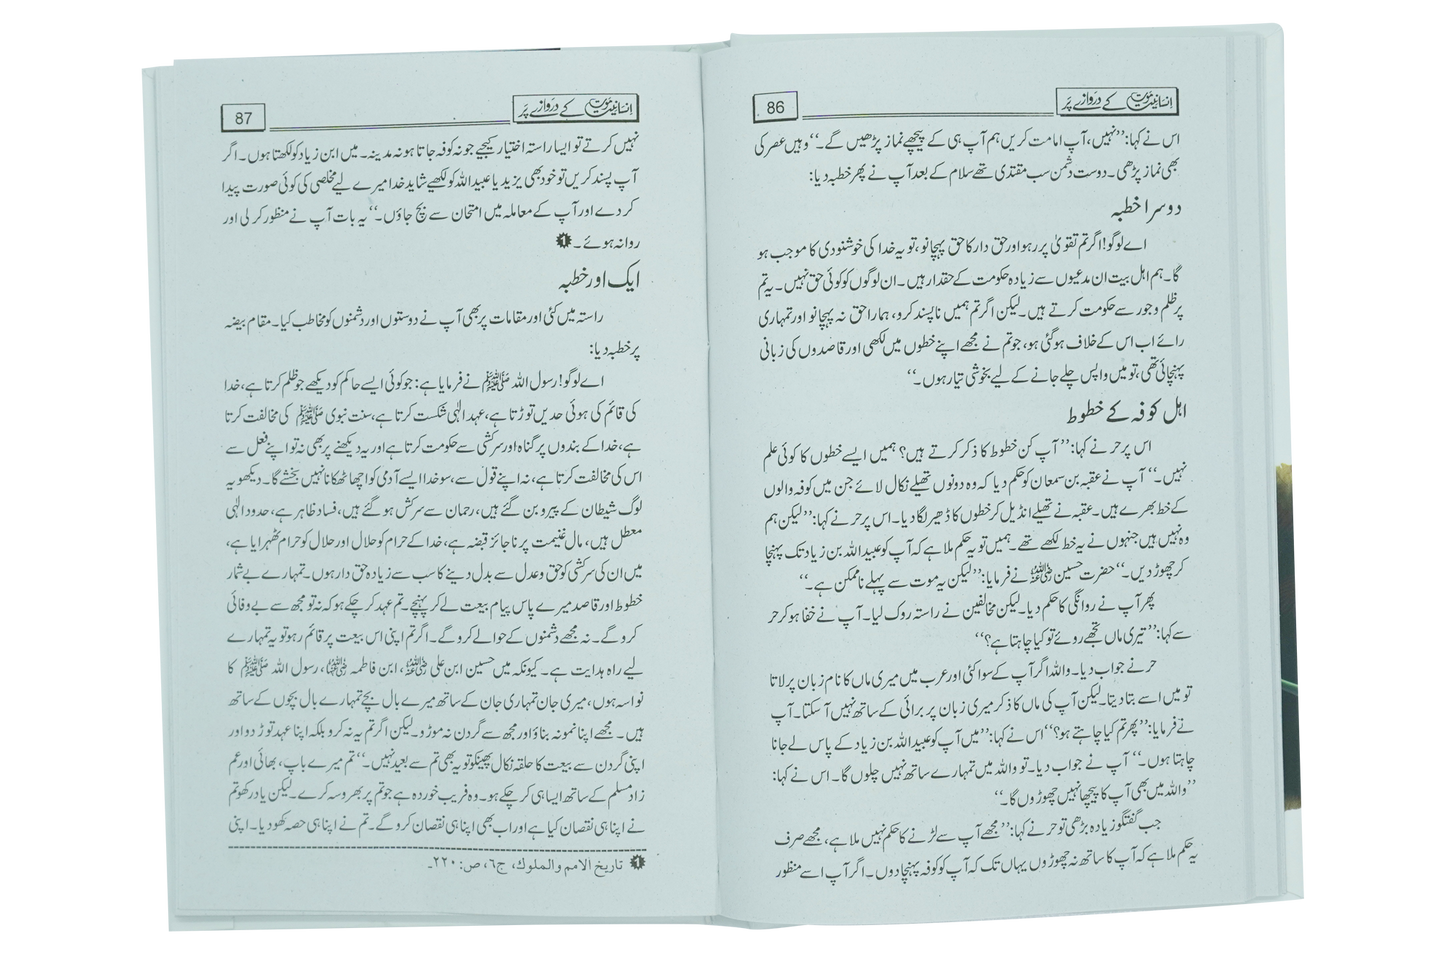 86
انسانیت موت کے دروازے پر
اس نے کہا: ’’نہیں، آپ امامت کریں ہم آپ ہی کے پیچھے نماز پڑھیں گے۔‘‘ وہیں عصر کی
بھی نماز پڑھی۔ دوست دشمن سب مقتدی تھے سلام کے بعد آپ نے پھر خطبہ دیا:
دوسرا خطبہ
اے لوگو! اگر تم تقویٰ پر رہو اور حق دار کا حق پہچانو، تو یہ خدا کی خوشنودی کا موجب ہو
گا۔ ہم اہل بیت ان مدعیوں سے زیادہ حکومت کے حقدار ہیں۔ ان لوگوں کو کوئی حق نہیں۔ یہ تم
پر ظلم و جور سے حکومت کرتے ہیں۔ لیکن اگر تم ہمیں ناپسند کرو، ہمارا حق نہ پہچانو اور تمہاری
رائے اب اس کے خلاف ہوگئی ہو، جو تم نے مجھے اپنے خطوں میں لکھی اور قاصدوں کی زبانی
پہنچائی تھی، تو میں واپس چلے جانے کے لیے بخوشی تیار ہوں۔‘‘
اہل کوفہ کے خطوط
اس پر حر نے کہا: ’’آپ کن خطوط کا ذکر کرتے ہیں؟ ہمیں ایسے خطوں کا کوئی علم
نہیں۔‘‘ آپ نے عقبہ بن سمعان کو حکم دیا کہ وہ دونوں تھیلے نکال لائے جن میں کوفہ والوں
کے خط بھرے ہیں۔ عقبہ نے تھیلے انڈیل کر خطوں کا ڈھیر لگا دیا۔ اس پر حر نے کہا: ’’لیکن ہم
وہ نہیں ہیں جنہوں نے یہ خط لکھے تھے۔ ہمیں تو یہ حکم ملا ہے کہ آپ کو عبید اللہ بن زیاد تک پہنچا
کر چھوڑ دیں۔‘‘ حضرت حسین رضی اللہ عنہ نے فرمایا: ’’لیکن یہ موت سے پہلے ناممکن ہے۔‘‘
پھر آپ نے روانگی کا حکم دیا۔ لیکن مخالفین نے راستہ روک لیا۔ آپ نے خفا ہو کر حر
سے کہا: ’’تیری ماں تجھے روئے تو کیا چاہتا ہے؟‘‘
حر نے جواب دیا۔ واللہ اگر آپ کے سوا کئی اور عرب میں میری ماں کا نام زبان پر لاتا
تو میں اسے بتا دیتا۔ لیکن آپ کی ماں کا ذکر میری زبان پر برائی کے ساتھ نہیں آسکتا۔ آپ
نے فرمایا: ’’پھر تم کیا چاہتے ہو؟‘‘ اس نے کہا: ’’میں آپ کو عبید اللہ بن زیاد کے پاس لے جانا
چاہتا ہوں۔‘‘ آپ نے جواب دیا۔ تو واللہ میں تمہارے ساتھ نہیں چلوں گا۔ اس نے کہا:
’’واللہ میں بھی آپ کا پیچھا نہیں چھوڑوں گا۔‘‘
جب گفتگو زیادہ بڑھی تو حر نے کہا: ’’مجھے آپ سے لڑنے کا حکم نہیں ملا ہے، مجھے صرف
یہ حکم ملا ہے کہ آپ کا ساتھ نہ چھوڑوں یہاں تک کہ آپ کو کوفہ پہنچا دوں۔ اگر آپ اسے منظور
87
انسانیت موت کے دروازے پر
نہیں کرتے تو ایسا راستہ اختیار کیجیے جو نہ کوفہ جاتا ہو نہ مدینہ۔ میں ابن زیاد کو لکھتا ہوں۔ اگر
آپ پسند کریں تو خود بھی یزید یا عبید اللہ کو لکھیے شاید خدا میرے لیے مخلصی کی کوئی صورت پیدا
کر دے اور آپ کے معاملہ میں امتحان سے بچ جاؤں۔‘‘ یہ بات آپ نے منظور کر لی اور
روانہ ہوئے۔ ❶
ایک اور خطبہ
راستہ میں کئی اور مقامات پر بھی آپ نے دوستوں اور دشمنوں کو مخاطب کیا۔ مقام بیضہ
پر خطبہ دیا:
اے لوگو! رسول اللہ ﷺ نے فرمایا ہے: جو کوئی ایسے حاکم کو دیکھے جو ظلم کرتا ہے، خدا
کی قائم کی ہوئی حدیں توڑتا ہے، عہد الٰہی شکست کرتا ہے، سنت نبوی ﷺ کی مخالفت کرتا
ہے، خدا کے بندوں پر گناہ اور سرکشی سے حکومت کرتا ہے اور یہ دیکھنے پر بھی نہ تو اپنے فعل سے
اس کی مخالفت کرتا ہے، نہ اپنے قول سے، سو خدا ایسے آدمی کو اچھا ٹھکانا نہیں بخشے گا۔ دیکھو یہ
لوگ شیطان کے پیرو بن گئے ہیں، رحمان سے سرکش ہو گئے ہیں، فساد ظاہر ہے، حدود الٰہی
معطل ہیں، مال غنیمت پر ناجائز قبضہ ہے، خدا کے حرام کو حلال اور حلال کو حرام ٹھہرایا ہے،
میں ان کی سرکشی کو حق و عدل سے بدل دینے کا سب سے زیادہ حق دار ہوں۔ تمہارے بے شمار
خطوط اور قاصد میرے پاس پیام بیعت لے کر پہنچے۔ تم عہد کر چکے ہو کہ نہ تو مجھ سے بے وفائی
کرو گے۔ نہ مجھے دشمنوں کے حوالے کرو گے۔ اگر تم اپنی اس بیعت پر قائم رہو تو یہ تمہارے
لیے راہ ہدایت ہے۔ کیونکہ میں حسین ابن علی رضی اللہ عنہ، ابن فاطمہ رضی اللہ عنہا، رسول اللہ ﷺ کا
نواسہ ہوں، میری جان تمہاری جان کے ساتھ میرے بال بچے تمہارے بال بچوں کے ساتھ
ہیں۔ مجھے اپنا نمونہ بناؤ اور مجھ سے گردن نہ موڑو۔ لیکن اگر تم یہ نہ کرو بلکہ اپنا عہد توڑ دو اور
اپنی گردن سے بیعت کا حلقہ نکال پھینکو تو یہ بھی تم سے بعید نہیں۔‘‘ تم میرے باپ، بھائی اور عم
زاد مسلم کے ساتھ ایسا ہی کر چکے ہو۔ وہ فریب خوردہ ہے جو تم پر بھروسہ کرے۔ لیکن یاد رکھو تم
نے اپنا ہی نقصان کیا ہے اور اب بھی اپنا ہی نقصان کرو گے۔ تم نے اپنا ہی حصہ کھو دیا۔ اپنی
❶ تاریخ الامم والملوك، ج۶، ص: ۲۲۰۔